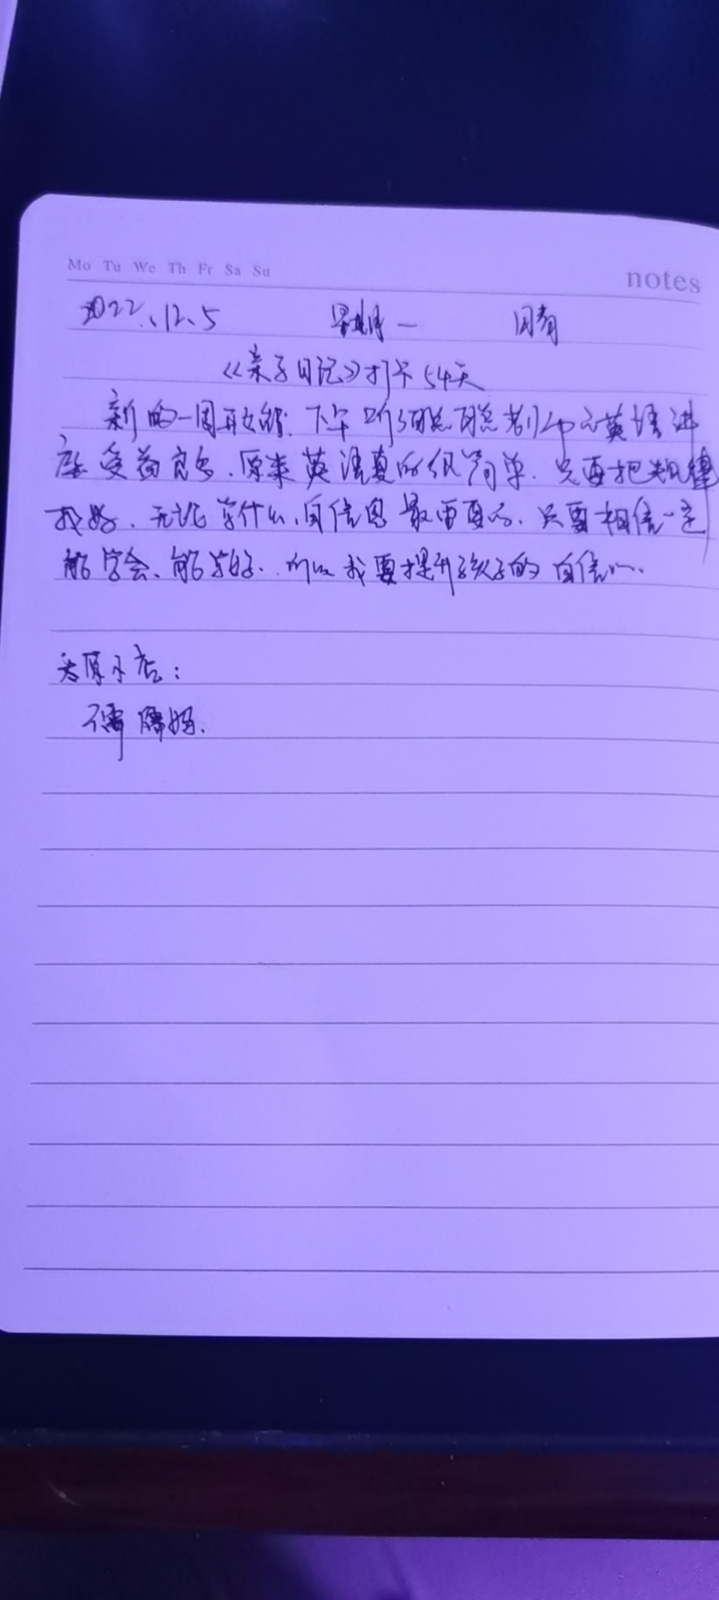 Mo Tu We Th Fr Sa Su
notes
2022.12.5 星期一
《亲子日记》打卡54天
新的一周 下午听了聪聪老师的英语讲
座受益良多.原来英语真的很简单.只要把规律
找好.无论学什么,自信是最重要的.只要相信一定
能学会、能学好.所以我要提升孩子的自信心.
太原小店: